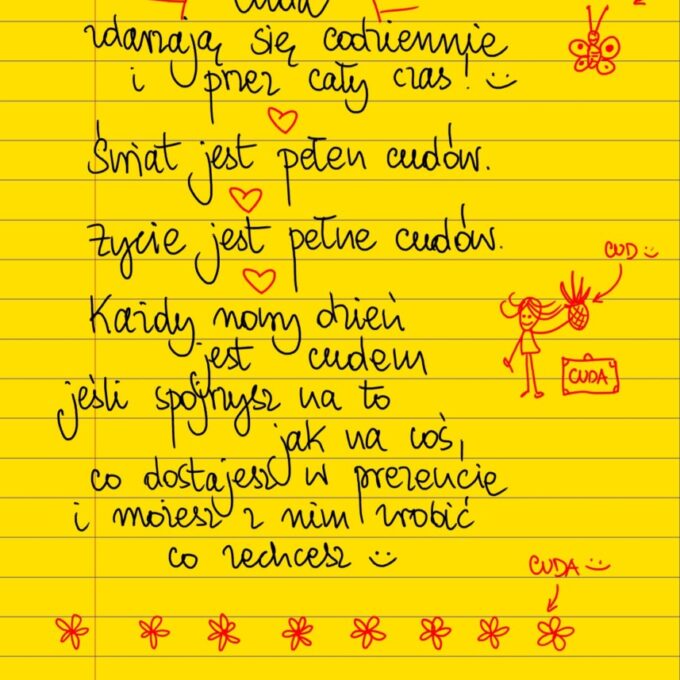 cuda
zdarzają się codziennie
i przez cały czas! :)
Świat jest pełen cudów.
Życie jest pełne cudów.
CUD :)
Każdy nowy dzień
jest cudem
CUDA
jeśli spojrzysz na to
jak na coś,
co dostajesz w prezencie
i możesz z nim zrobić
co zechcesz :)
CUDA :)